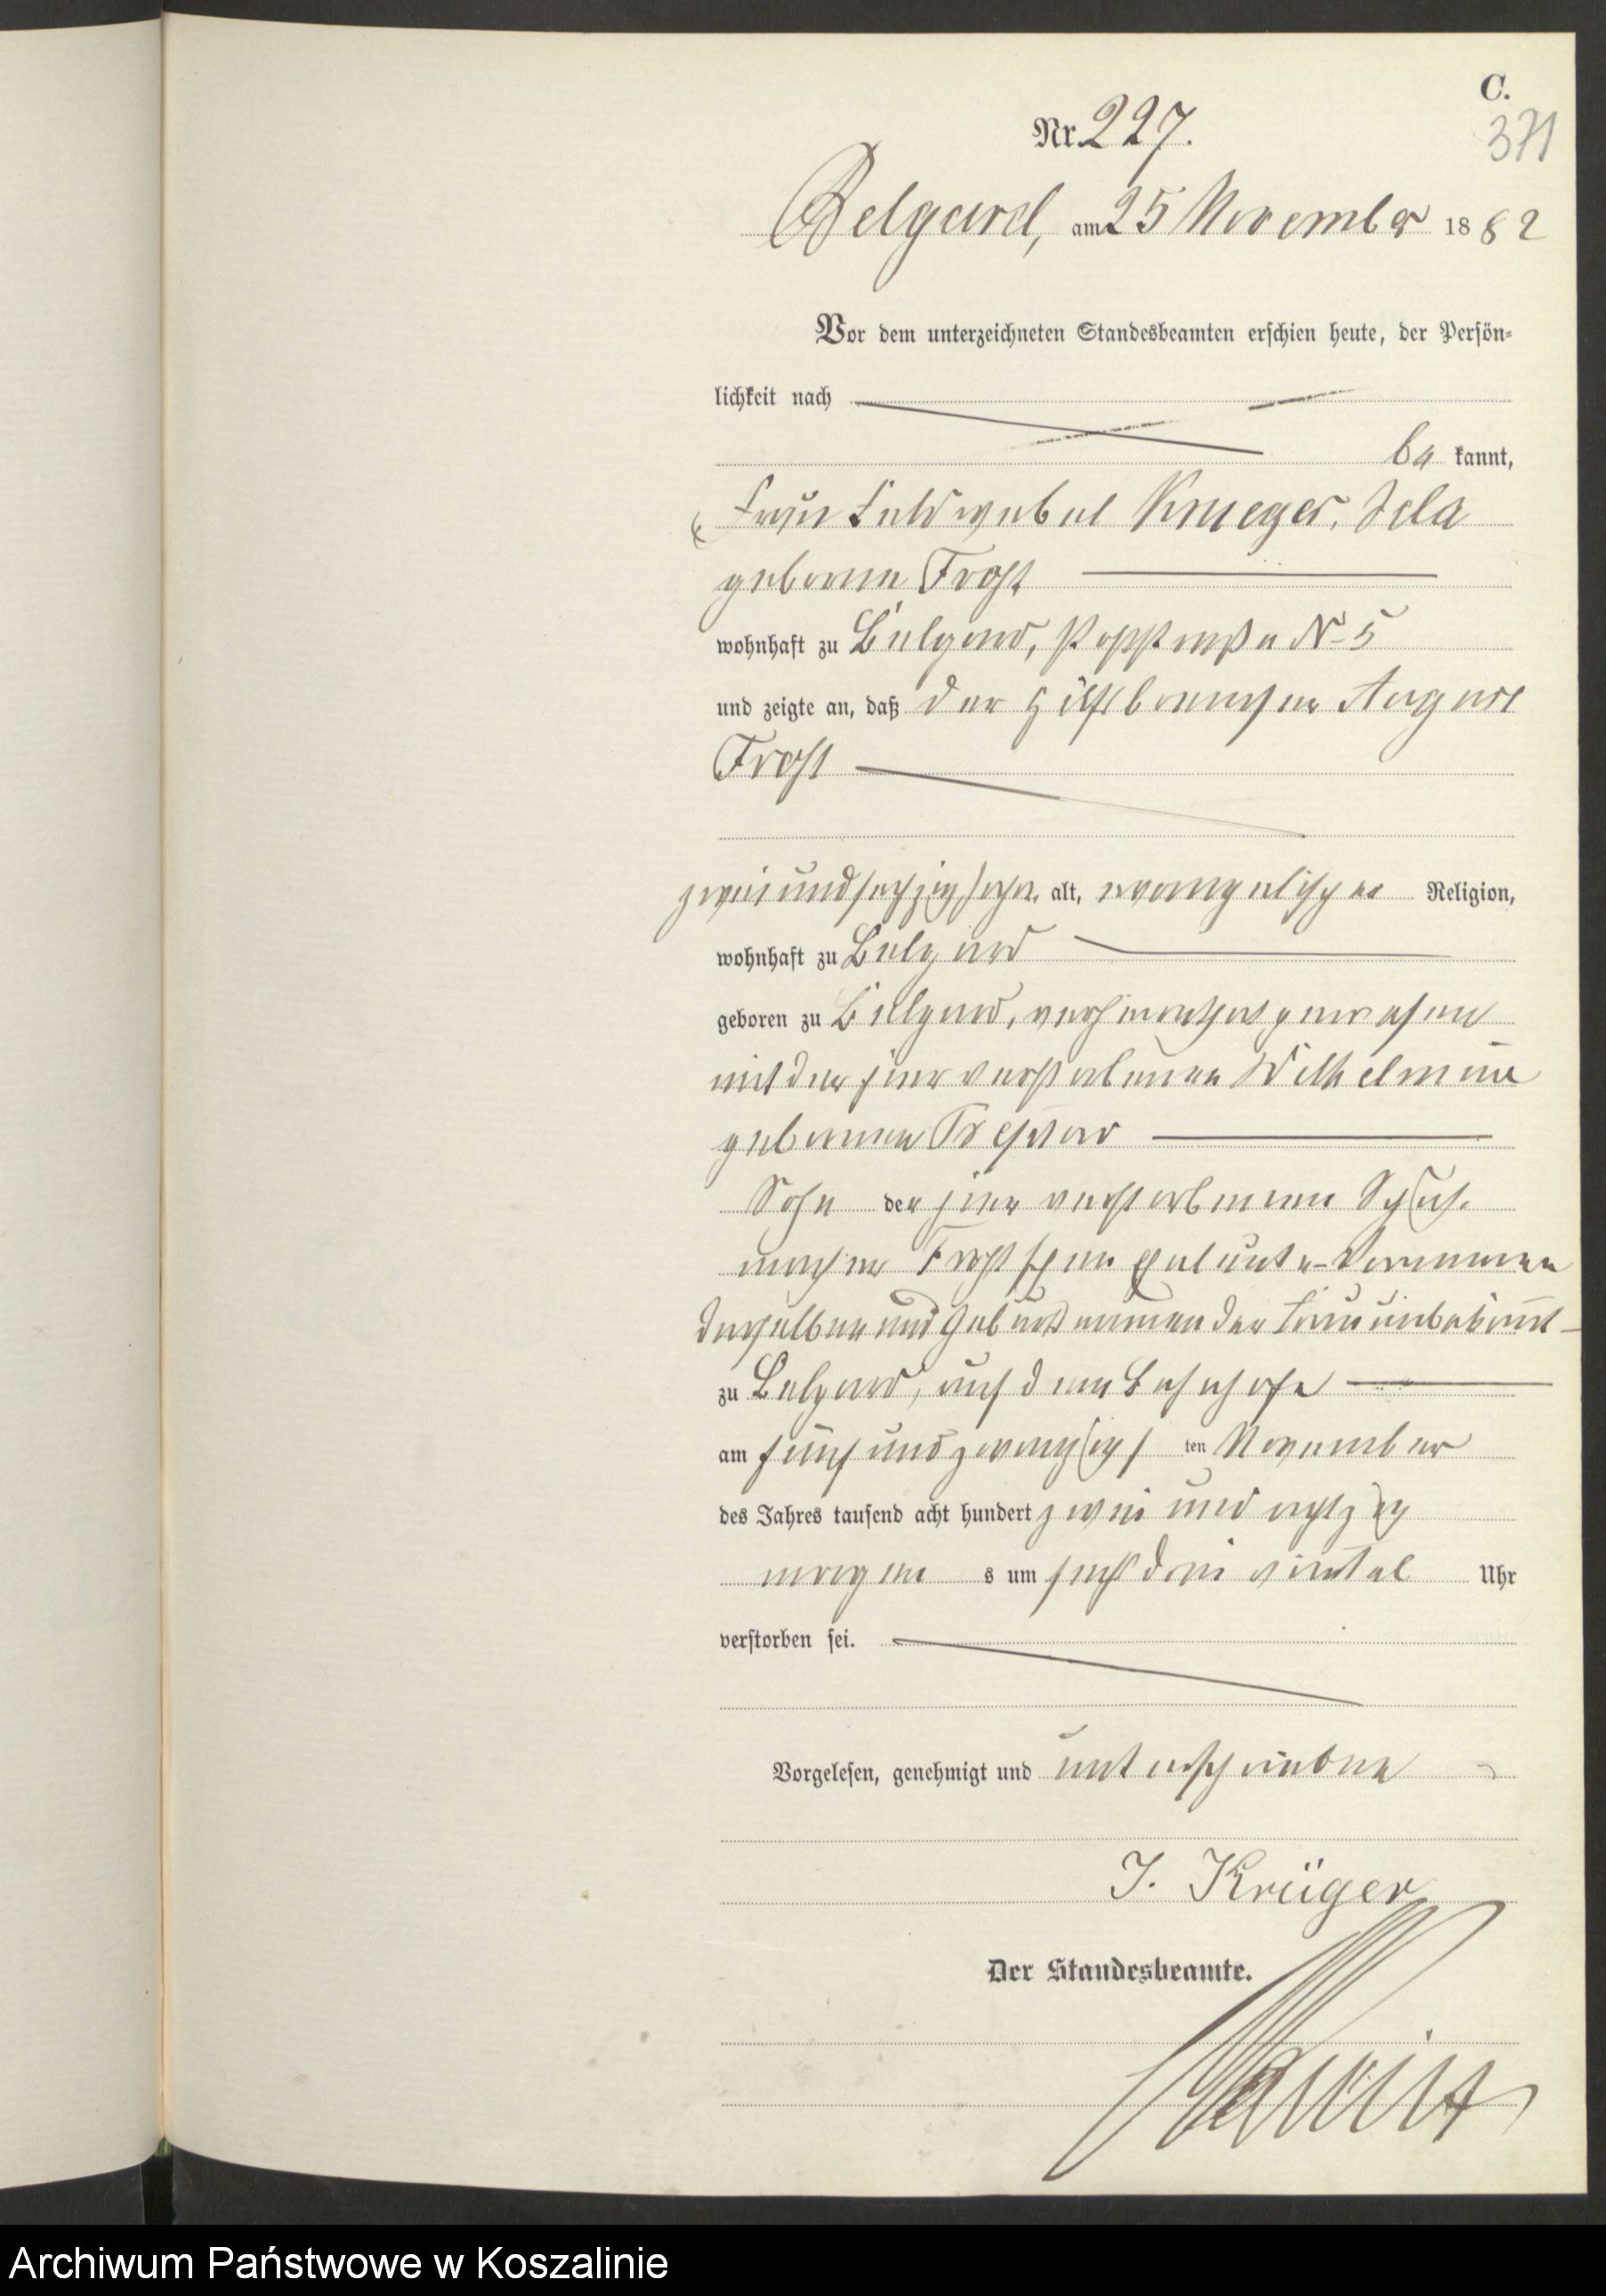 C.
371
Nr. 227.
Belgard, am 25 November 1882
Vor dem unterzeichneten Standesbeamten erschien heute, der Persön-
lichkeit nach
be kannt,
Frau Feldwebel Krueger,
geborne Frost
wohnhaft zu Belgard, Poststraße No 5
und zeigte an, daß der Hülfsbremser August
Frost
zweiundsechzig Jahr alt, evangelischer Religion,
wohnhaft zu Belgard
geboren zu Belgard, verheirathet gewesen
mit der hier verstorbenen Wilhelmine
gebornen
Sohn der hier verstorbenen Schuh-
macher Frost'schen Eheleute - Vornamen
derselben und Geburtsnamen der Frau unbekannt -
zu Belgard, auf dem Bahnhofe
am fünf und zwanzigs ten November
des Jahres tausend acht hundert zwei und achtzig
morgen s um sechs drei viertel Uhr
verstorben sei.
Vorgelesen, genehmigt und unterschrieben
J. Krüger
Der Standesbeamte.
Archiwum Państwowe w Koszalinie